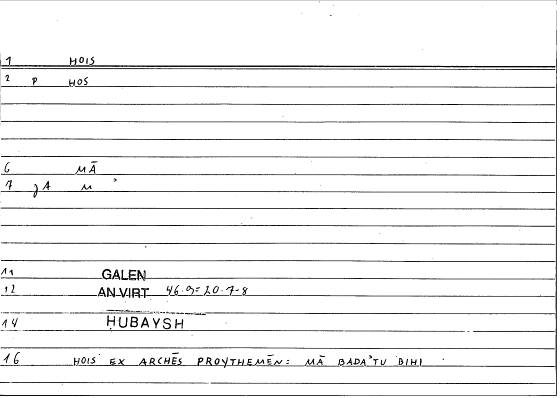 1 HOIS
2 P HOS
6 MĀ
7 JA M ʾ
11 GALEN
12 AN.VIRT 46.9 = 20.7-8
14 HUBAYSH
16 HOIS EX ARCHĒS PROYTHEMĒN: MĀ BADAʾTU BIHI